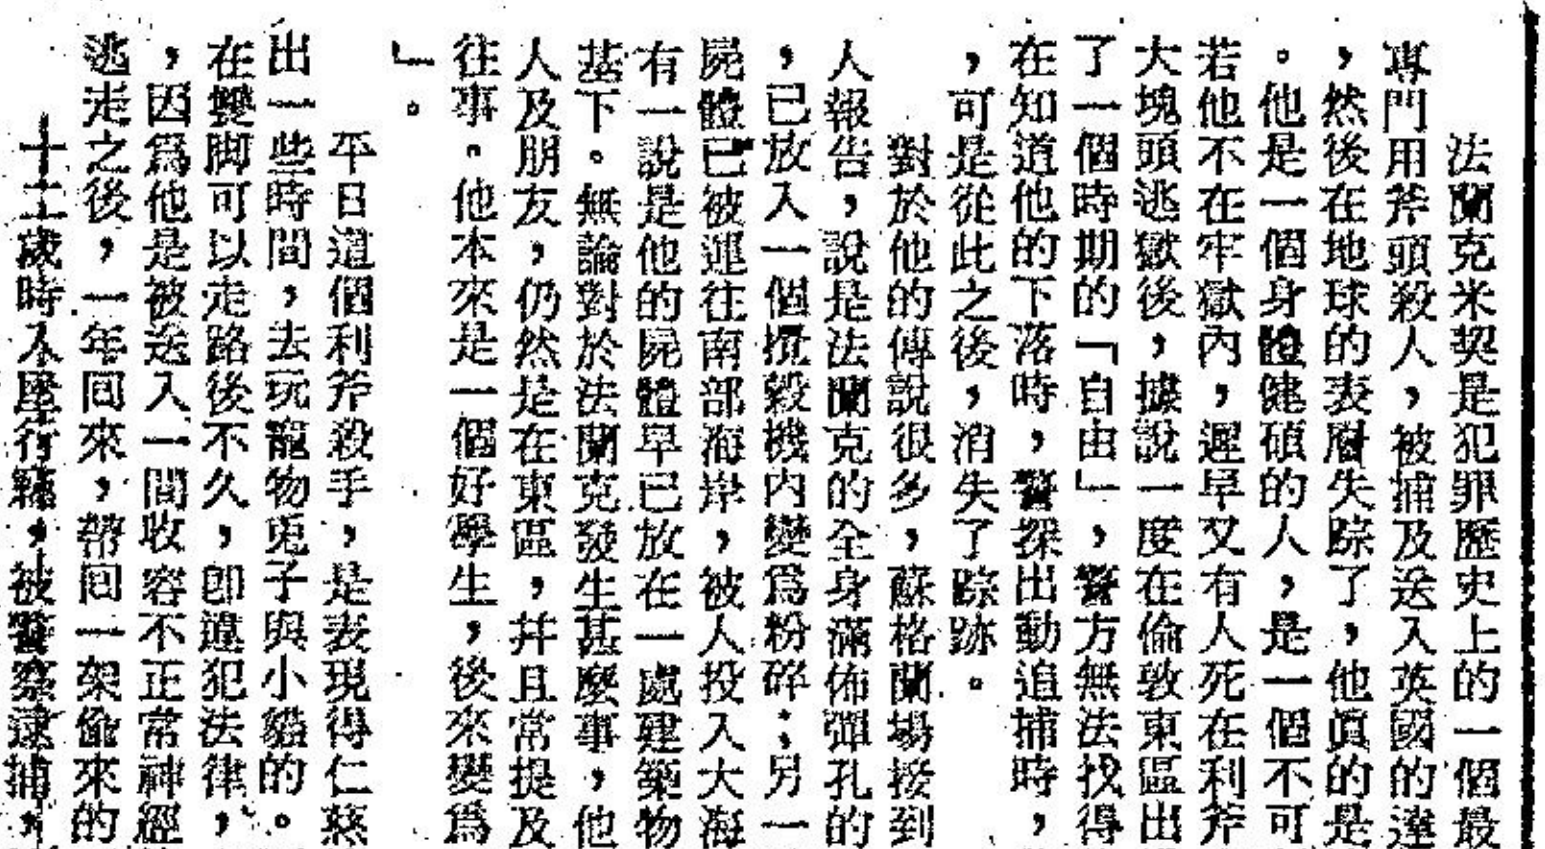 法蘭克米契是犯罪歷史上的一個最
專門用斧頭殺人，被捕及送入英國的達
，然後在地球的表層失踪了，他眞的是
。他是一個身體健碩的人，是一個不可
若他不在牢獄內，遲早又有人死在利斧
大塊頭逃獄後，據說一度在倫敦東區出
了一個時期的「自由」，警方無法找得
在知道他的下落時，警探出動追捕時，
，可是從此之後，消失了踪跡。
對於他的傳說很多，蘇格蘭場接到
人報告，說是法蘭克的全身滿佈彈孔的
，已放入一個攪穀機內變爲粉碎；另一
屍體已被運往南部海岸，被人投入大海
有一說是他的屍體早已放在一處建築物
基下。無論對於法蘭克發生甚麼事，他
人及朋友，仍然是在東區，幷且常提及
往事。他本來是一個好學生，後來變爲
」。
平日這個利斧殺手，是表現得仁慈
出一些時間，去玩寵物兎子與小貓的。
在雙脚可以走路後不久，卽違犯法律，
，因爲他是被送入一間收容不正常神經
逃走之後，一年回來，帶回一架偷來的
十二歲時入屋行竊，被警察逮捕，